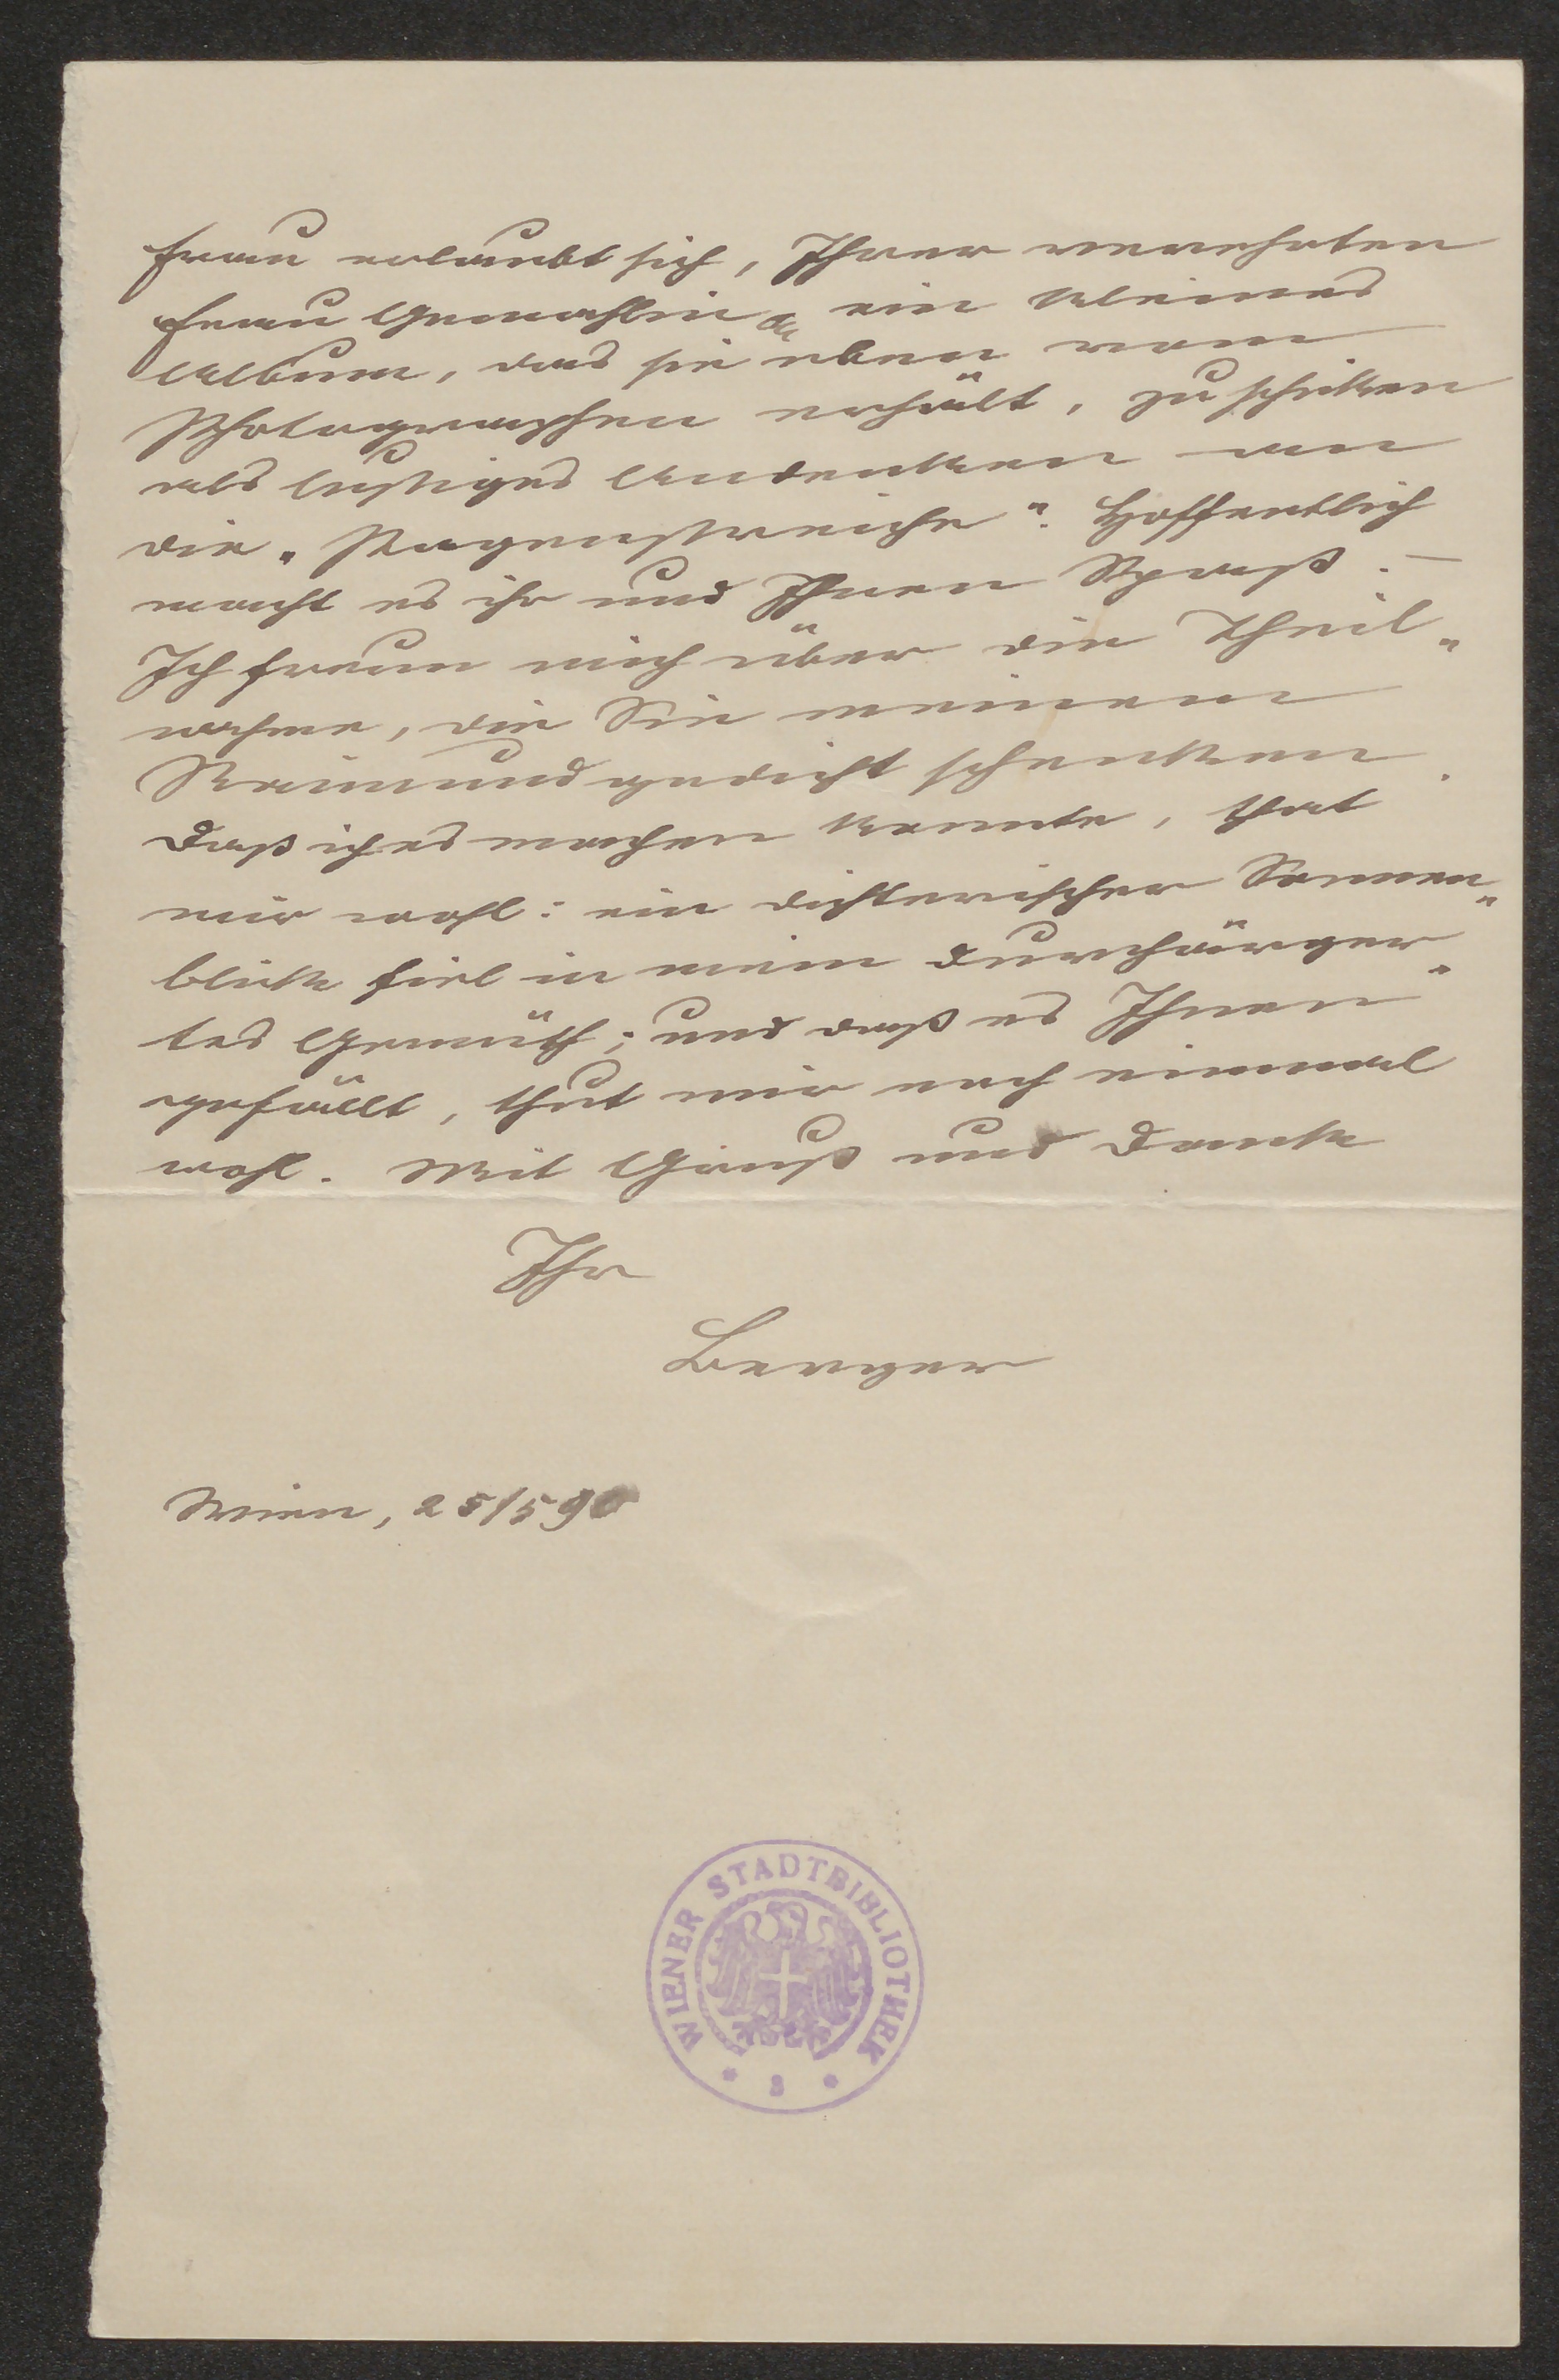 Frau erlaubt sich, Ihrer verehrten
Frau Gemahlin ein kleines
Album, das sie eben vom
Photographen erhält, zu schicken
als lustiges Andenken an
die „Pagenstreiche“. Hoffentlich
macht es ihr und Ihnen Spaß. —
Ich freue mich über die Theil„
nahme, die Sie meinem
Raimundgedicht schenken.
Daß ich es machen konnte, that
mir wohl: ein dichterischer Sonnen„
blick fiel in mein durchärger„
tes Gemüth; und daß es Ihnen
gefällt, thut mir noch einmal
wohl. Mit Gruß und Dank
Ihr
Berger
Wien, 25/5 90
WIENER STADTBIBLIOTHEK